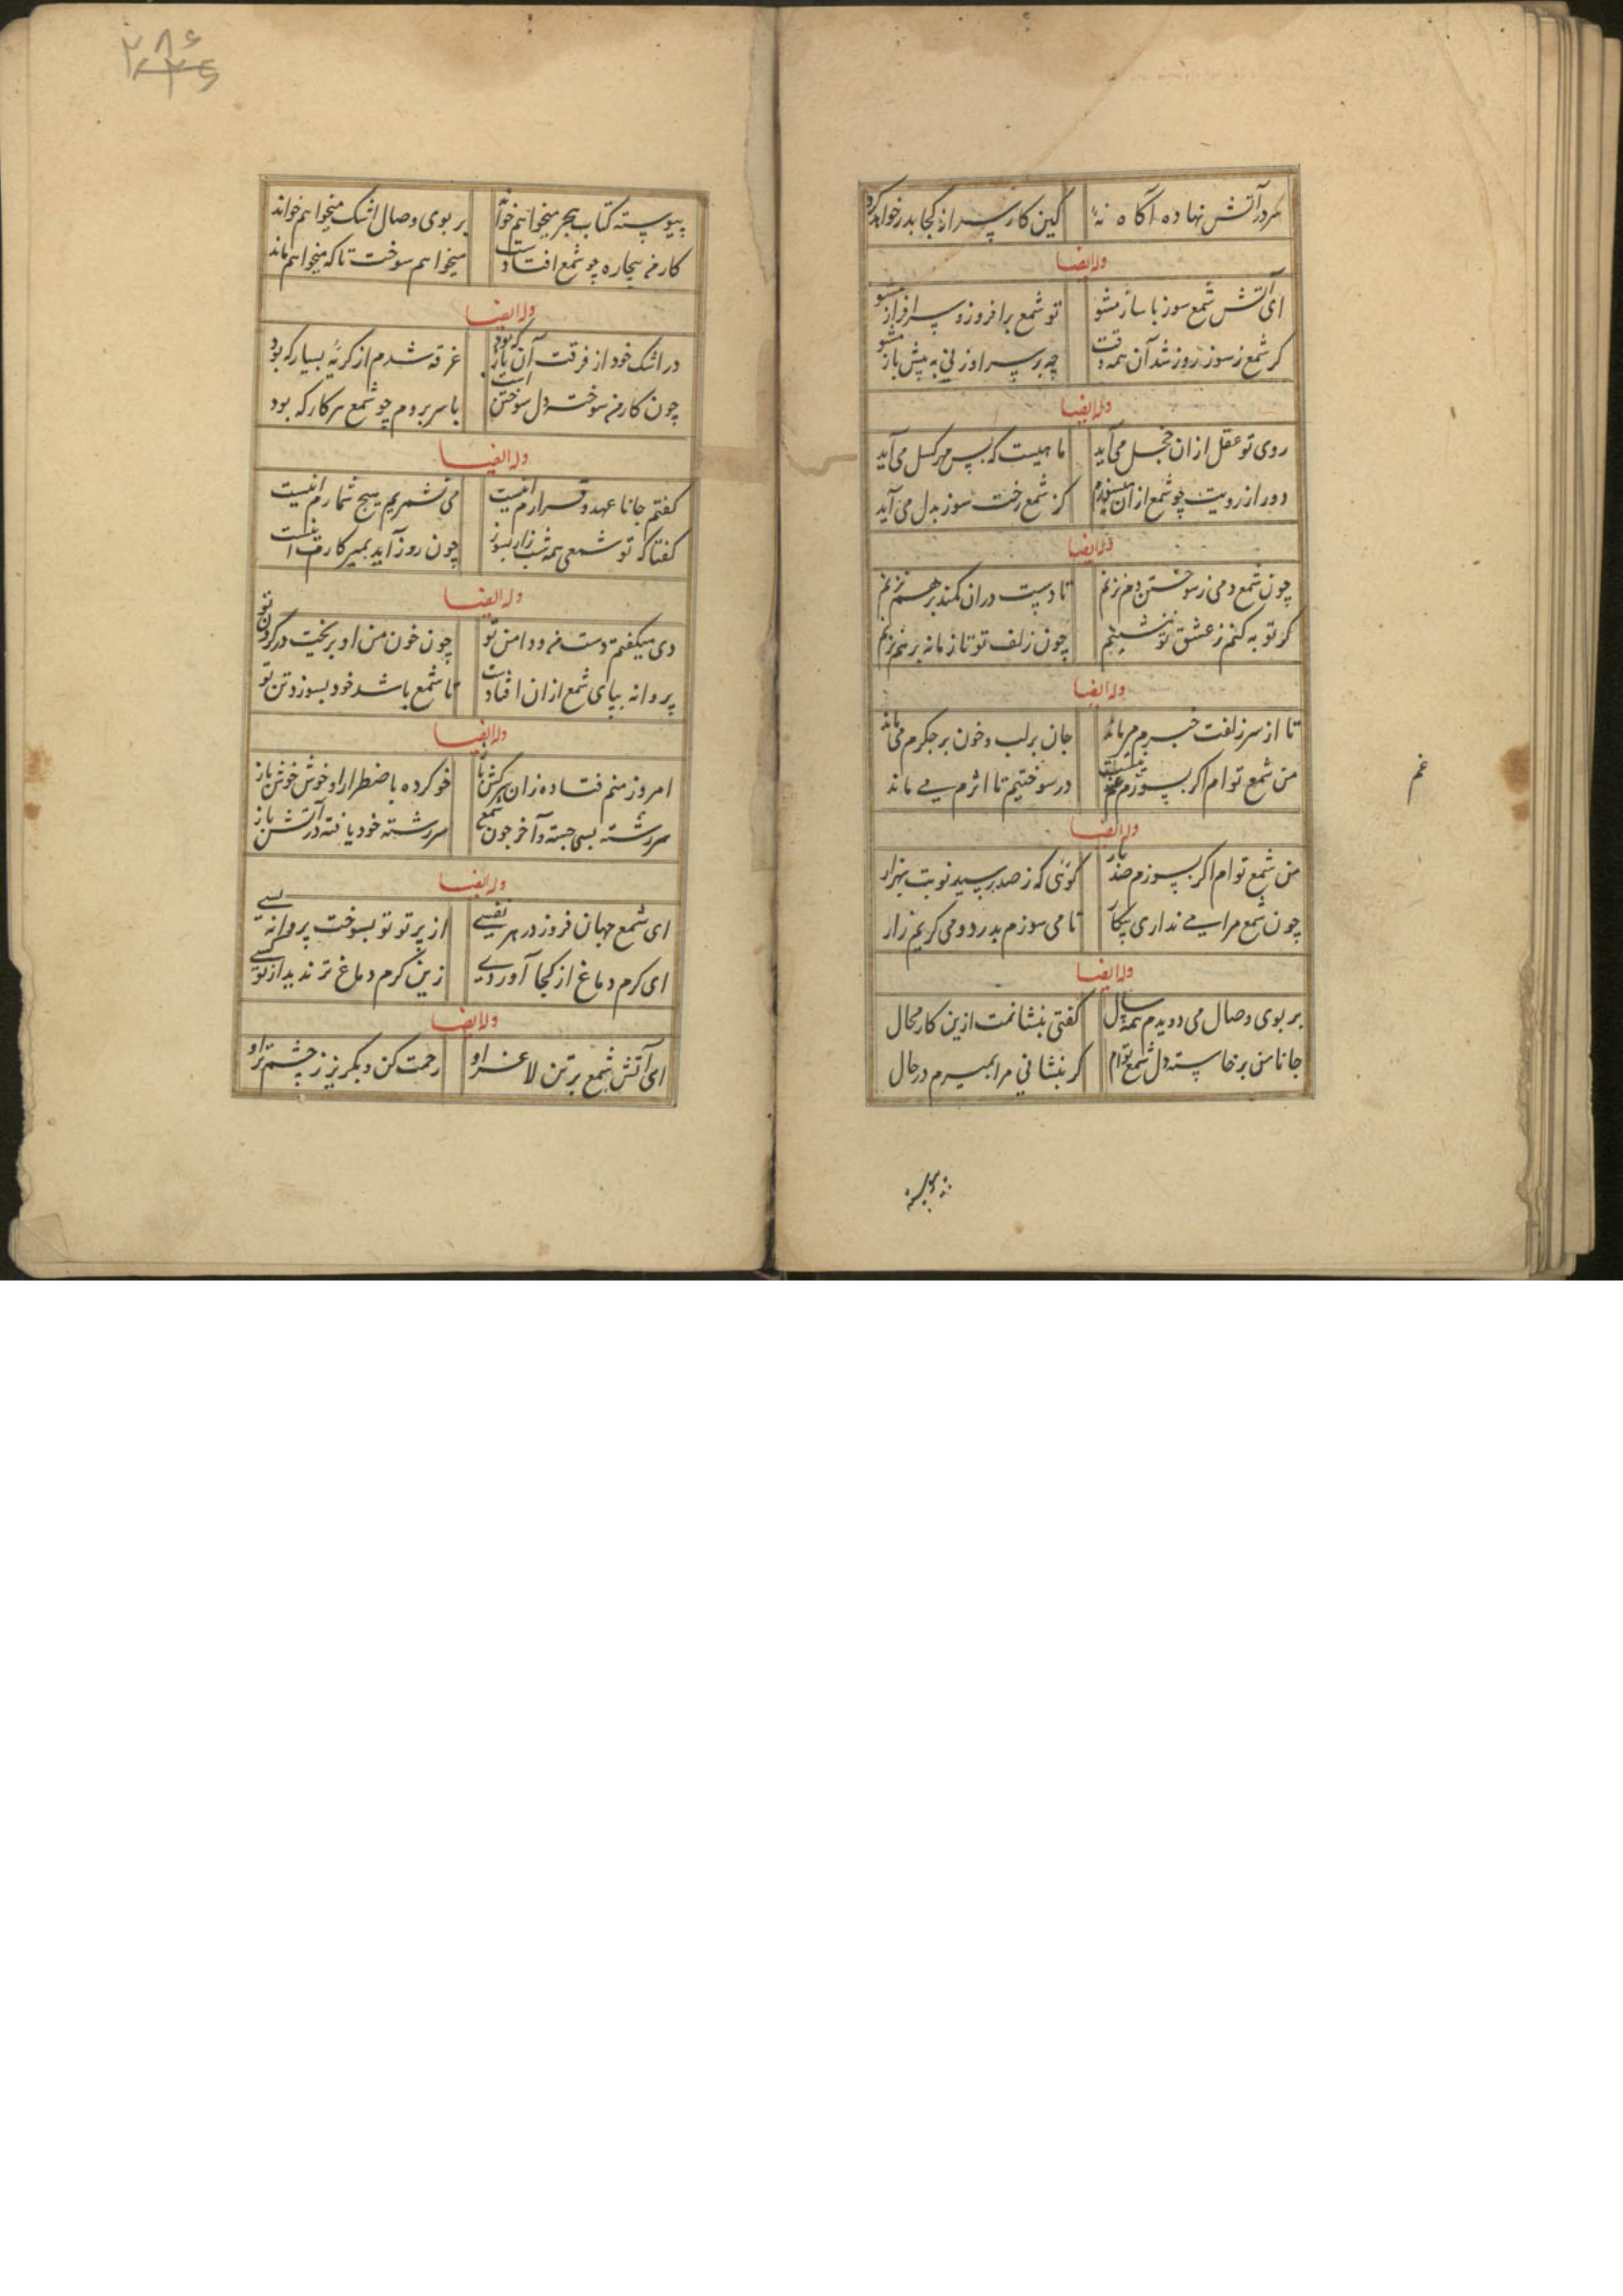 سر در آتش نهاده آگاه نهٔ
کین کار پسر از کجا بدر خواهد کرد
وله ایضا
ای آتش شمع سوز با ساز مشو
تو شمع برافروز و سرافراز مشو
کر شمع ز سوز روز شد آن همه رفت
چه بر سر او زنی به پیش باز مشو
وله ایضا
روی تو عقل ازان خجل می آید
ماهیست که بس مهر کسل می آید
دور از رویت چو شمع ازان میسوزم
کز شمع رخت سوز بدل می آید
وله ایضا
چون شمع دمی ز سوختن دم نزنم
تا دست دران کمند برهم نزنم
کر توبه کنم ز عشق تو ننشینم
چون زلف تو تا زمانه برهم نزنم
وله ایضا
تا از سر زلفت خبرم میماند
جان بر لب و خون بر جکرم می ماند
من شمع توام اکر بسوزم غم نیست
در سوختیم تا اثرم می ماند
وله ایضا
من شمع توام اکر بسوزم صد بار
کوئی که ز صد رسید نوبت بهزار
چون شمع مرا می نداری بیکار
تا می سوزم بدرد و می کریم زار
وله ایضا
بر بوی وصال می دویدم همه سال
کفتی بنشانمت ازین کار محال
جانا من برخاسته دل شمع توام
کر بنشانی مرا بمیرم در حال
غم
پیوسته
۲۸۶
پیوسته کتاب هجر میخواهم خواند
بر بوی وصال اشک میخواهم خواند
کار من بیچاره چو شمع افتادست
میخواهم سوخت تا که میخواهم ماند
وله ایضا
در اشک خود از فرقت آن یار که بود
غرقه شدم از کریهٔ بسیار که بود
چون کار من سوخته دل سوختن است
با سر بردم چو شمع هر کار که بود
وله ایضا
کفتم جانا عهد و قرارم اینست
می نشمریم هیچ شمارم اینست
کفتا که تو شمعی همه شب زار بسوز
چون روز آید بمیر کارت اینست
وله ایضا
دی میکفتم دست من و دامن تو
چون خون من او بریخت در کردن تو
پروانه بپای شمع ازان افتادست
تا شمع باشد خود بسوزد تن تو
وله ایضا
امروز منم فتاده زان سرکش باز
خو کرده باضطرار او خوش خوش باز
سررشته بسی جسته و آخر چون شمع
سررشته خود یافته در آتش باز
وله ایضا
ای شمع جهان فروز در هر نفسی
از پرتو تو بسوخت پروانه بسی
ای کرم دماغ از کجا آوردی
زین کرم دماغ تر ندید از تو کسی
وله ایضا
ای آتش شمع بر تن لاغر او
رحمت کن و بکریز ز چشم تر او